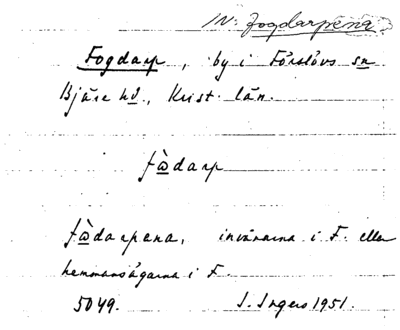 IN: Fogdarpena
Fogdarp, by i Förslövs sn
Bjäre hd, Krist. län.
fàdarp
fàdarpana, invånarna i F. eller
hemmansägarna i F.
5049. I. Ingers 1951.